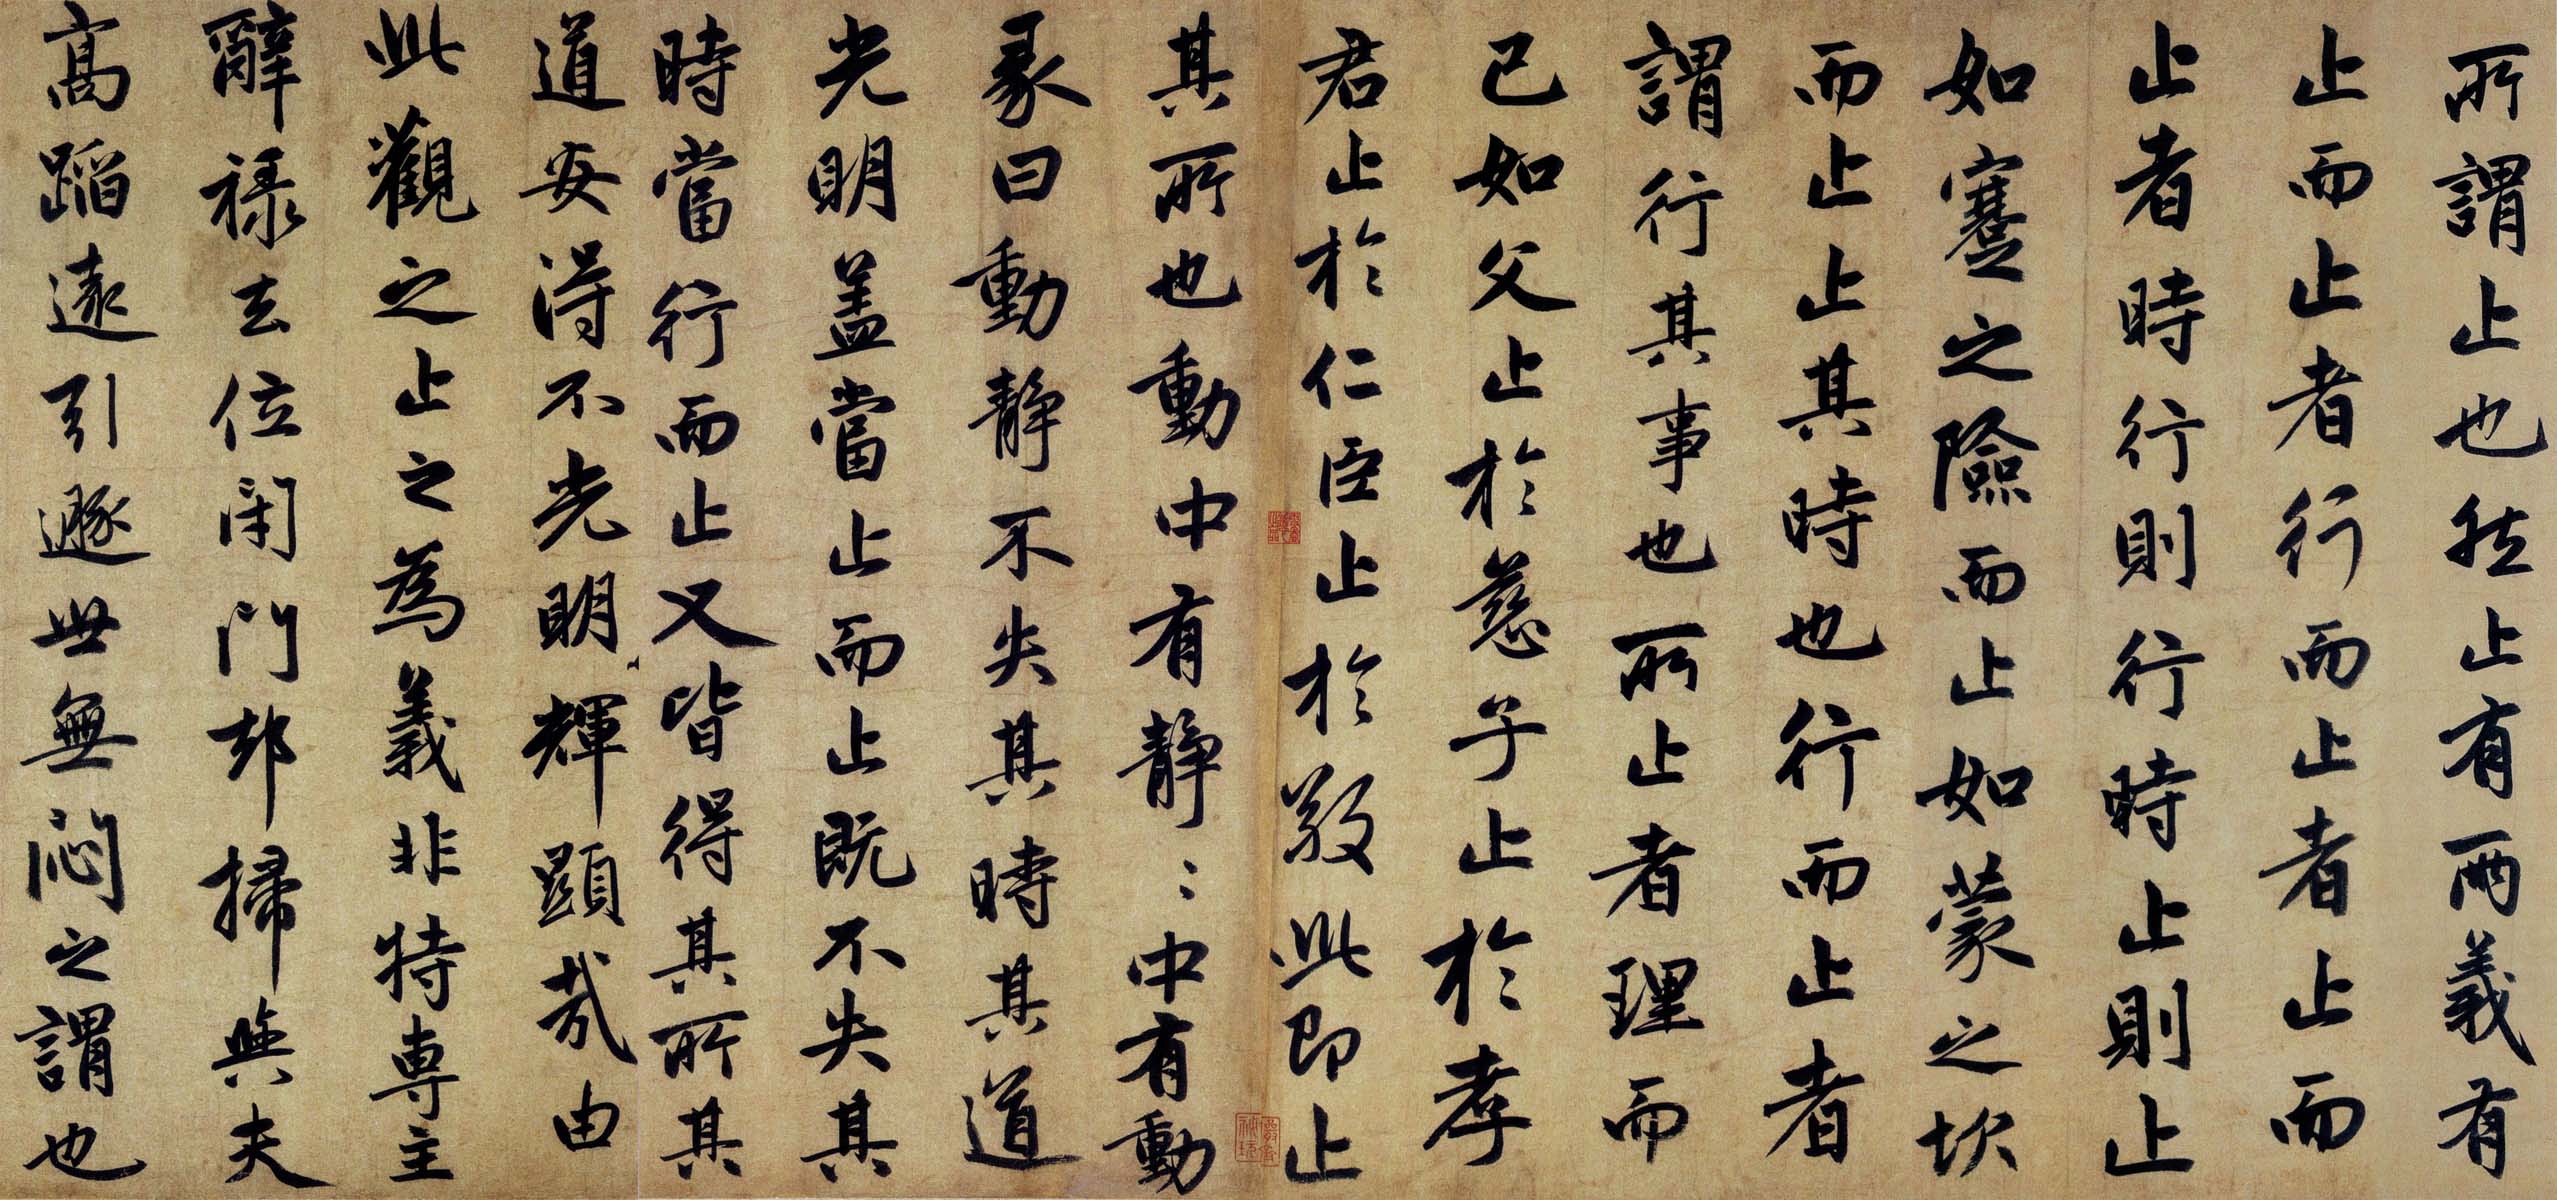 所謂止也然止有兩義有
止而止者行而止者止而
止者時行則行時止則止
如蹇之險而止如蒙之坎
而止止其時也行而止者
謂行其事也所止者理而
已如父止於慈子止於孝
君止於仁臣止於敬此即止
其所也動中有静〻中有動
彖曰動静不失其時其道
光明盖當止而止既不失其
時當行而止又皆得其所其
道安得不光明輝顯哉由
此觀之止之為義非特專主
辭祿去位閉門却掃與夫
高蹈遠引遯世無悶之謂也